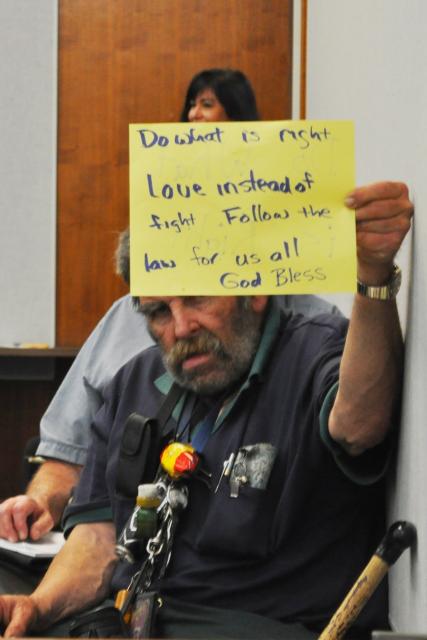 Do what is right
Love instead of
fight Follow the
law for us all
God Bless